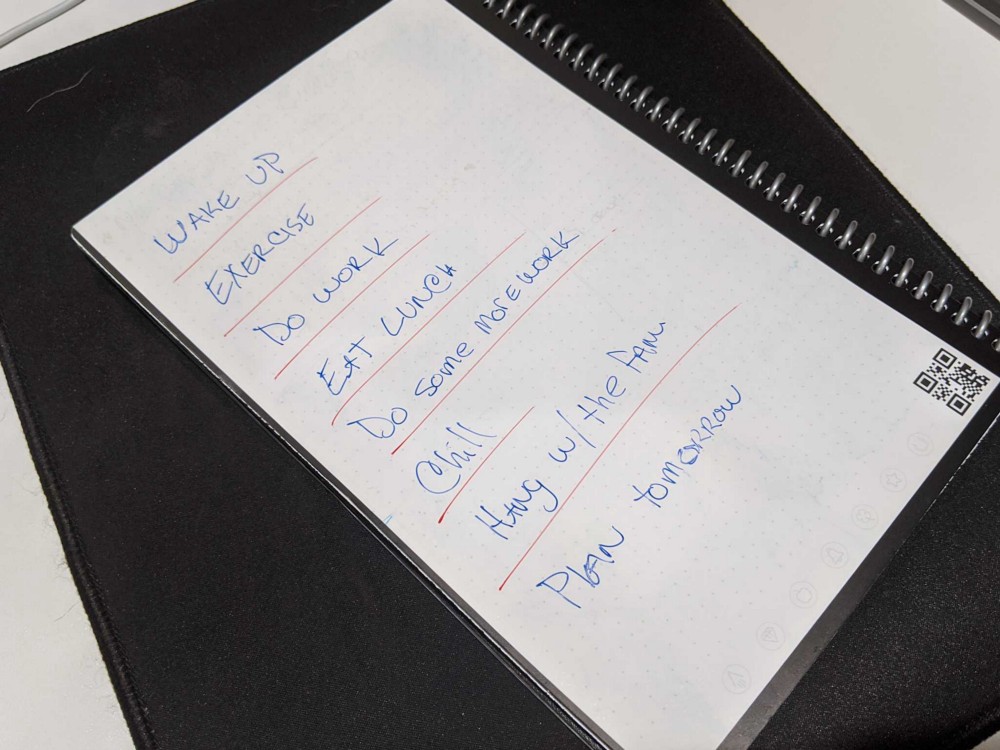 WAKE UP
EXERCISE
DO WORK
EAT LUNCH
DO Some more WORK
Chill
HANG w/ the FAM.
PlAN tomORROW